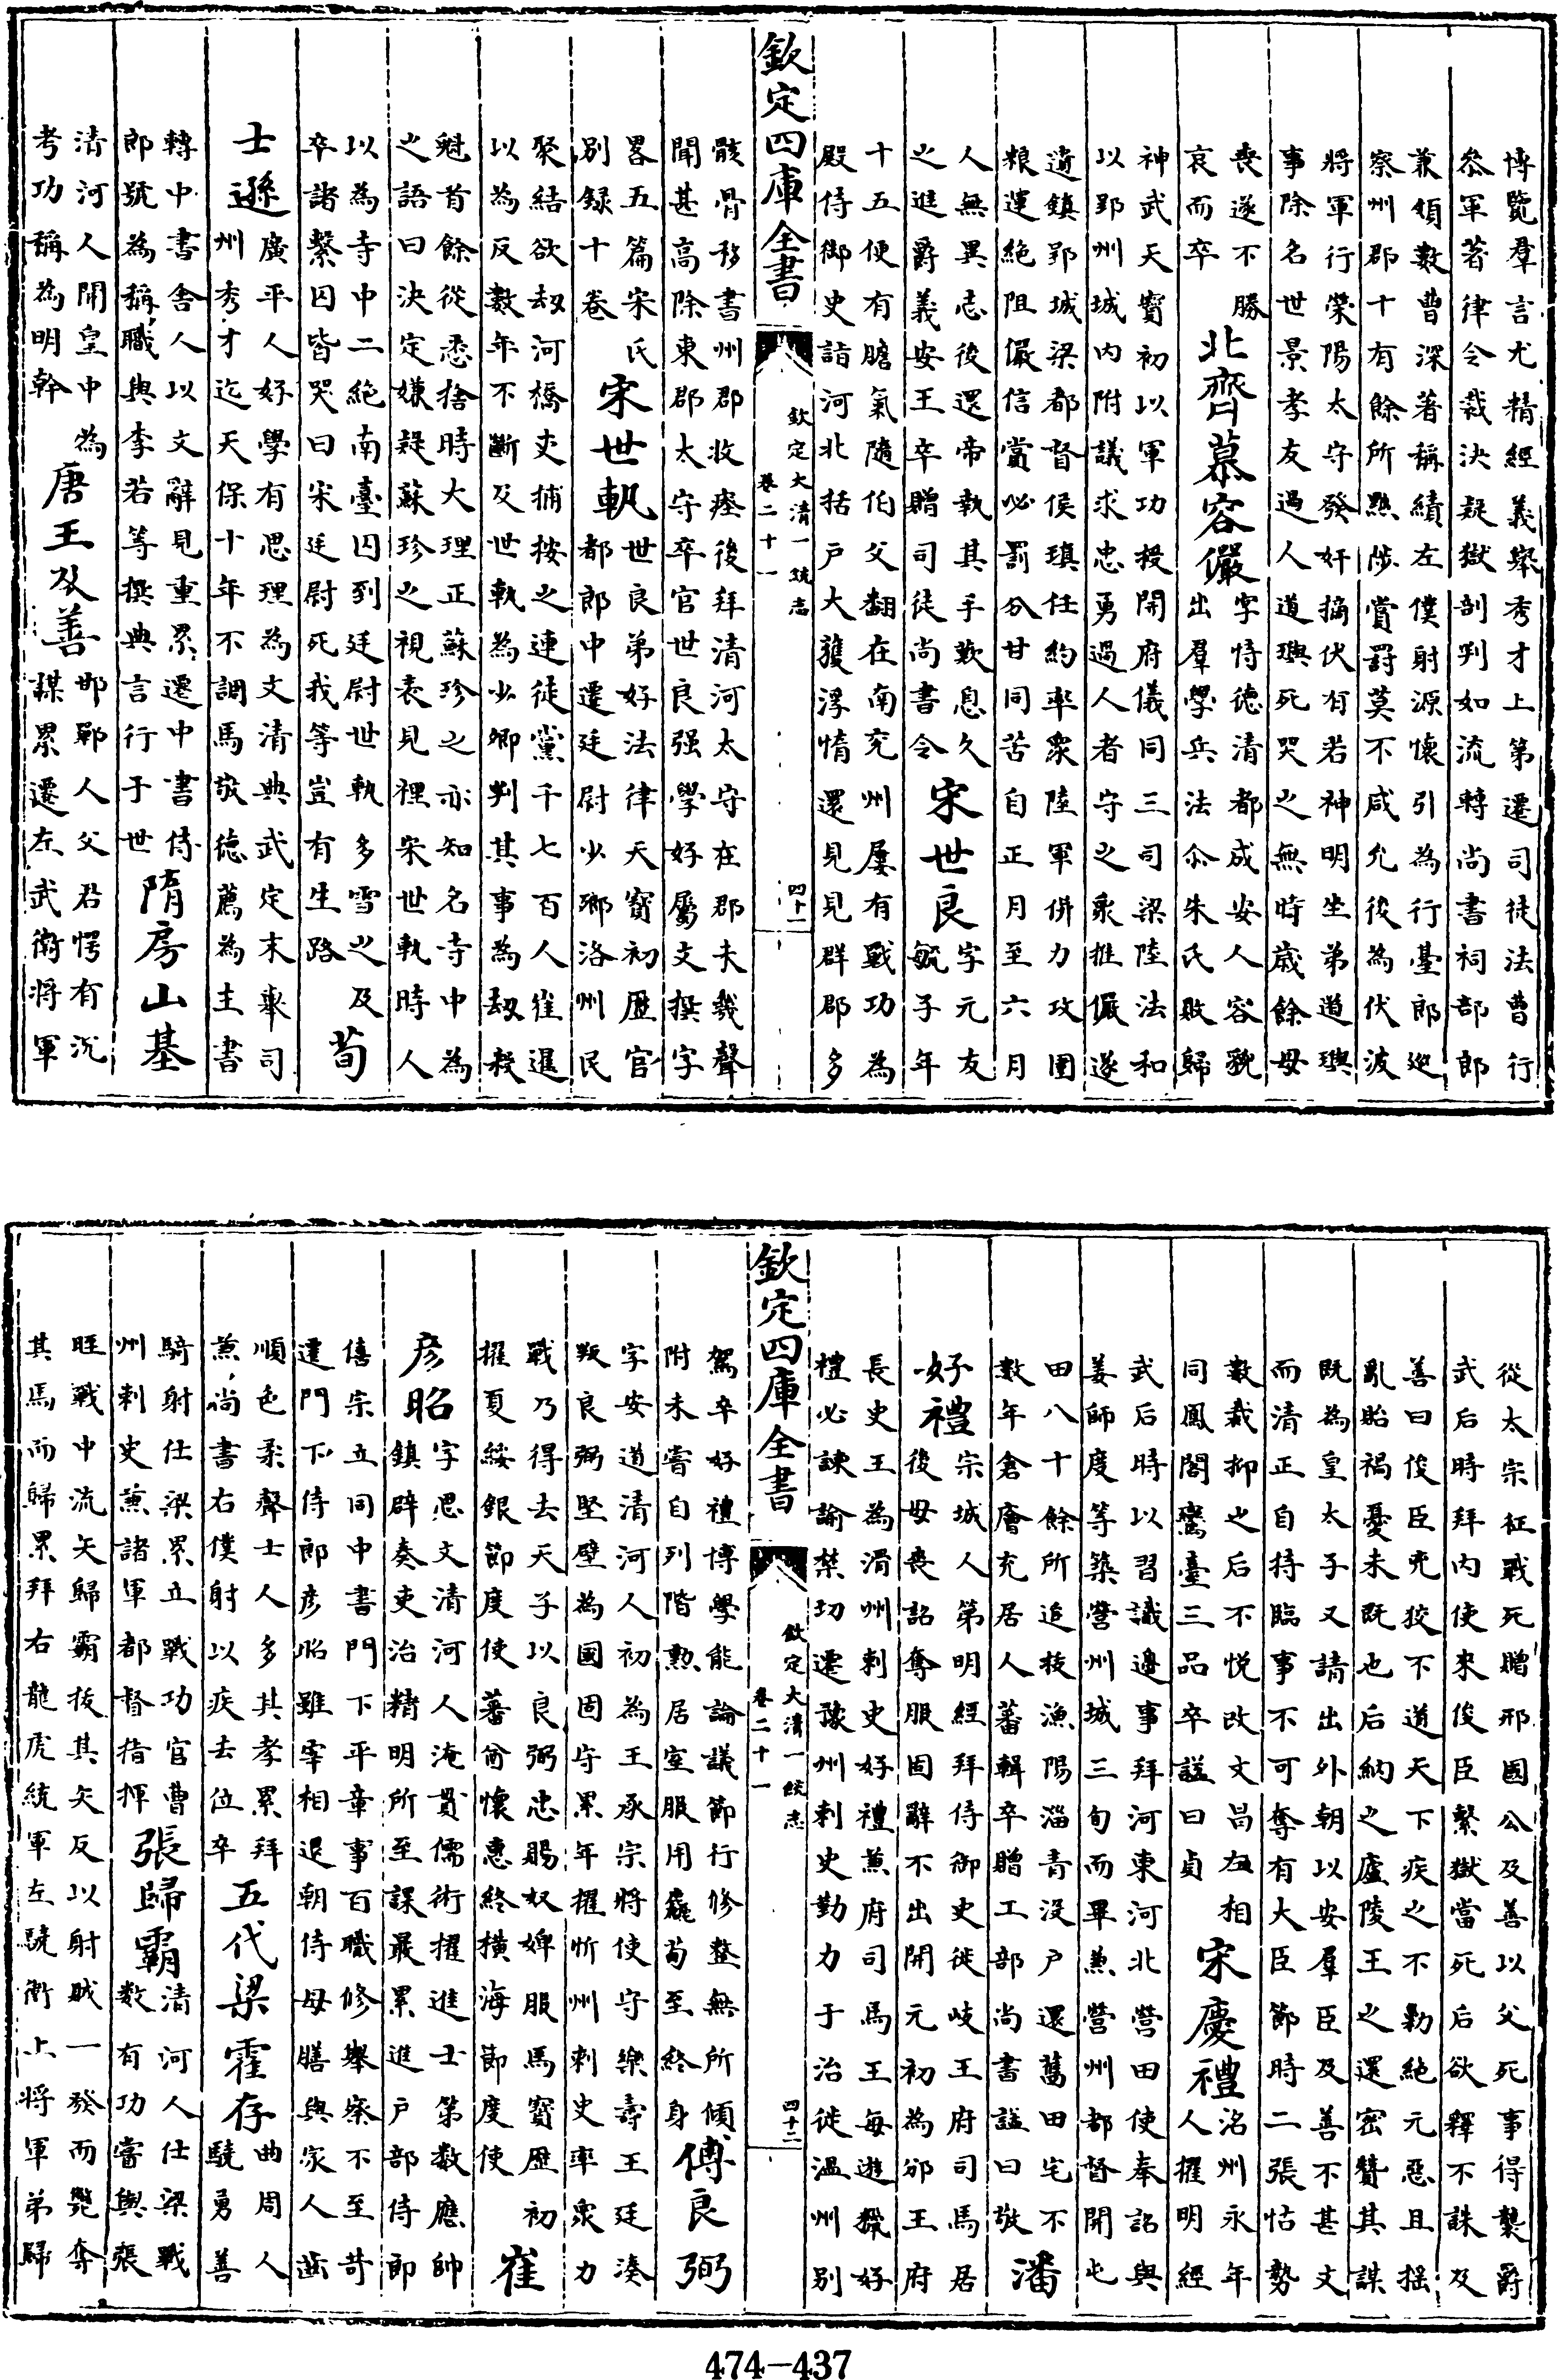 博覽羣言尤精經義舉秀才上第遷司徒法曹行
叅軍著律令裁決疑獄剖判如流轉尚書祠部郎
兼領數曹深著稱績左僕射源懷引為行臺郎巡
察州郡十有餘所黜陟賞罰莫不咸允後為伏波
將軍行滎陽太守發奸摘伏有若神明坐弟道璵
事除名世景孝友過人道璵死哭之無時歲餘母
喪遂不勝
哀而卒
北齊慕容儼
字恃德清都成安人容貌
出羣學兵法尒朱氏敗歸
神武天寳初以軍功授開府儀同三司梁陸法和
以郢州城内附議求忠勇過人者守之衆推儼遂
遣鎮郢城梁都督侯瑱任約率衆陸軍併力攻圍
粮運絶阻儼信賞必罰分甘同苦自正月至六月
人無異志後還帝執其手歎息久
之進爵義安王卒贈司徒尚書令
宋世良
字元友
毓子年
十五便有膽氣隨伯父翻在南兖州屢有戰功為
殿侍御史詣河北括户大獲浮惰還見見群郡多
欽定四庫全書
欽定大清一統志
卷二十一
四十一
骸骨移書州郡收瘞後拜清河太守在郡未幾聲
聞甚高除東郡太守卒官世良强學好屬文撰字
畧五篇宋氏
别録十卷
宋世軌
世良弟好法律天寳初歷官
都郎中遷廷尉少卿洛州民
聚結欲刼河橋吏捕按之連徒黨千七百人崔暹
以為反數年不斷及世軌為少卿判其事為刼殺
魁首餘從悉捨時大理正蘇珍之亦知名寺中為
之語曰決定嫌疑蘇珍之視表見裡宋世軌時人
以為寺中二絶南臺囚到廷尉世軌多雪之及
卒諸繫囚皆哭曰宋廷尉死我等豈有生路
荀
士遜
廣平人好學有思理為文清典武定末舉司
州秀才迄天保十年不調馬敬徳薦為主書
轉中書舍人以文辭見重累遷中書侍
郎號為稱職與李若等撰典言行于世
隋房山基
清河人開皇中為
考功稱為明幹
唐王及善
邯鄲人父君愕有沉
謀累遷左武衛將軍
從太宗征戰死贈邢國公及善以父死事得襲爵
武后時拜内使來俊臣繫獄當死后欲釋不誅及
善曰俊臣兇狡不道天下疾之不勦絶元惡且揺
亂貽禍憂未既也后納之廬陵王之還密贊其謀
既為皇太子又請出外朝以安羣臣及善不甚文
而清正自持臨事不可奪有大臣節時二張怙勢
數裁抑之后不悦改文昌左相
同鳳閣鸞臺三品卒諡曰貞
宋慶禮
洺州永年
人擢明經
武后時以習識邊事拜河東河北營田使奉詔與
姜師度等築營州城三旬而畢兼營州都督開屯
田八十餘所追拔漁陽淄青没户還舊田宅不
數年倉廥充居人蕃輯卒贈工部尚書諡曰敬
潘
好禮
宗城人第明經拜侍御史徙岐王府司馬居
後母喪詔奪服固辭不出開元初為邠王府
長史王為滑州刺史好禮兼府司馬王每遊獵好
禮必諫諭禁切遷豫州刺史勤力于治徙温州别
欽定四庫全書
欽定大清一統志
卷二十一
四十二
駕卒好禮博學能論議節行修整無所傾
附未嘗自列階勲居室服用麤茍至終身
傅良弼
字安道清河人初為王承宗將使守樂壽王廷湊
叛良弼堅壁為國固守累年擢忻州刺史率衆力
戰乃得去天子以良弼忠賜奴婢服馬寳歴初
擢夏綏銀節度使蕃酋懷惠終横海節度使
崔
彦昭
字思文清河人淹貫儒術擢進士第數應帥
鎮辟奏吏治精明所至課最累進户部侍郎
僖宗立同中書門下平章事百職修舉察不至苛
遷門下侍郎彦昭雖宰相退朝侍母膳與家人齒
順色柔聲士人多其孝累拜
兼尚書右僕射以疾去位卒
五代梁霍存
曲周人
驍勇善
騎射仕梁累立戰功官曹
州刺史兼諸軍都督指揮
張歸霸
清河人仕梁戰
數有功嘗與張
晊戰中流矢歸霸拔其矢反以射賊一發而斃奪
其馬而歸累拜右龍虎統軍左驍衛上將軍弟歸
474-437